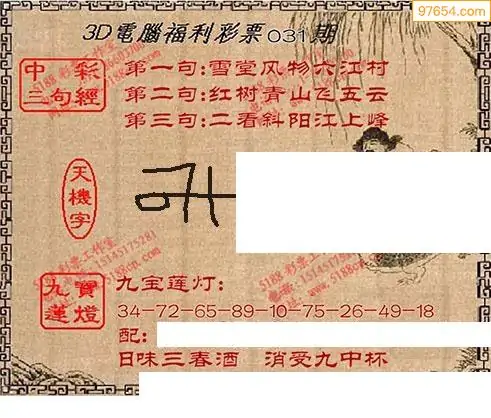 97654.com
3D電腦福利彩票031期
中彩三句經
第一句:雪堂风物六江村
第二句:红树青山飞五云
第三句:二看斜阳江上峰
天機字
九寶蓮燈
九宝莲灯:
34-72-65-89-10-75-26-49-18
配:
日味三春酒 消受九中杯
5188 彩票工作室
15145175281
5188cn.com